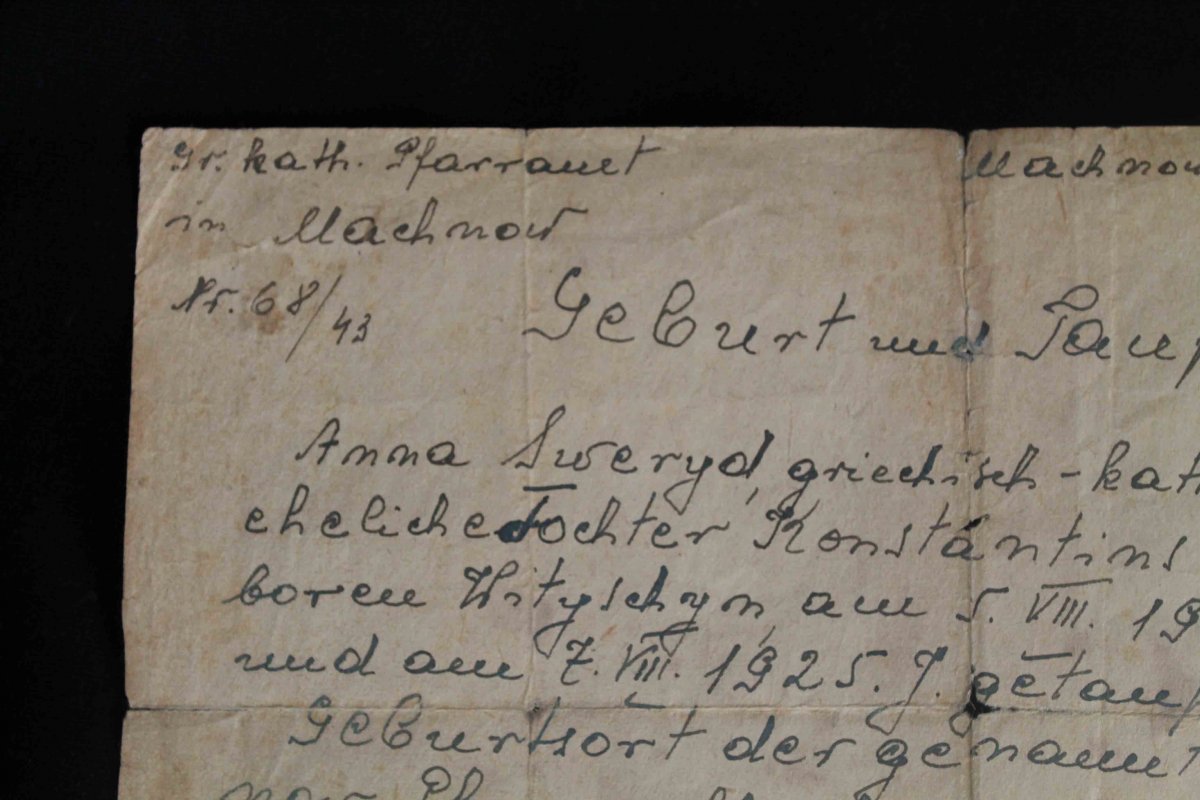 Gr. kath. Pfarramt Machnow
in Machnow
Nr. 68/43
Geburt und Tauf
Anna Sweryd, griechisch-kath
eheliche Tochter Konstantins
boren Hityschyn, am 5. VIII. 19
und am 7. VIII. 1925. J. getauf
Geburtsort der genannt